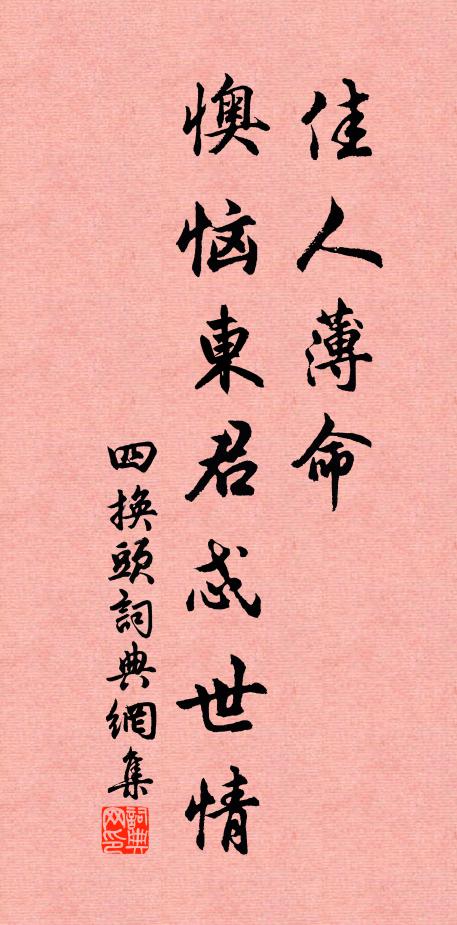 佳人薄命
懊恼東君忒世情
四換頭詞典網集
詞典网印